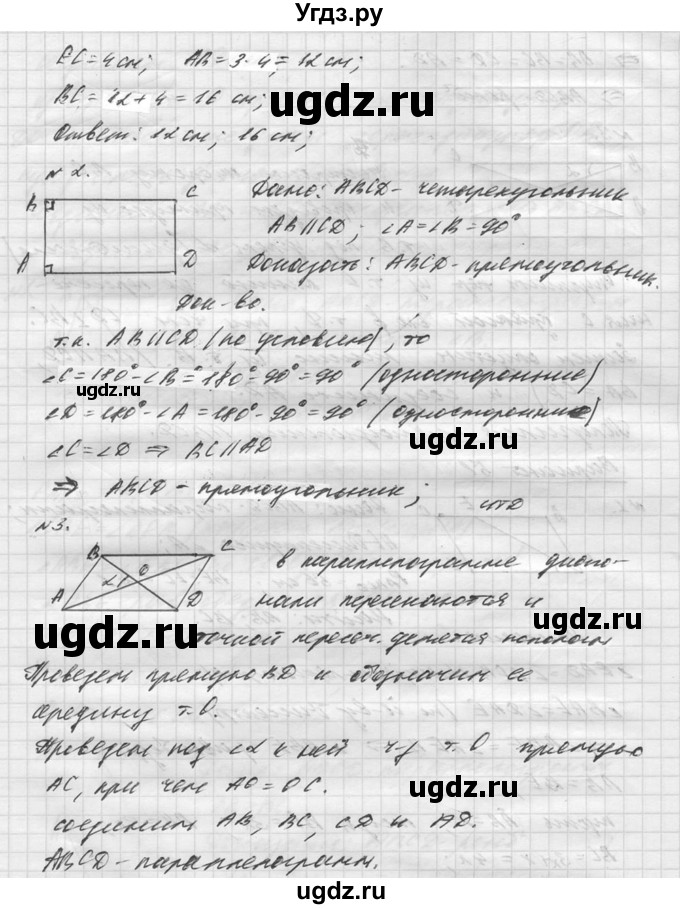 Угдз.ру
EC = 4 см; AB = 3 · 4 = 12 см;
BC = 12 + 4 = 16 см;
Ответ: 12 см; 16 см;
№ 2.
B C
A D
Дано: ABCD - четырехугольник
AB || CD; ∠A = ∠B = 90°
Доказать: ABCD - прямоугольник.
Док-во.
т.к. AB || CD (по условию), то
∠C = 180° - ∠B = 180° - 90° = 90° (односторонние)
∠D = 180° - ∠A = 180° - 90° = 90° (односторонние)
∠C = ∠D ⇒ BC || AD
⇒ ABCD - прямоугольник; чтд
№3.
B C
α O
A D
в параллелограмме диаго-
нали пересекаются и
точкой пересеч. делятся пополам
Проведем прямую BD и обозначим ее
середину т. O.
Проведем под ∠α к ней ч-з т. O прямую
AC, при чем AO = OC.
соединим AB, BC, CD и AD.
ABCD - параллелограмм.
ugdz.ru
ugdz.ru
ugdz.ru
ugdz.ru
ugdz.ru
ugdz.ru
ugdz.ru
ugdz.ru
ugdz.ru
ugdz.ru
ugdz.ru